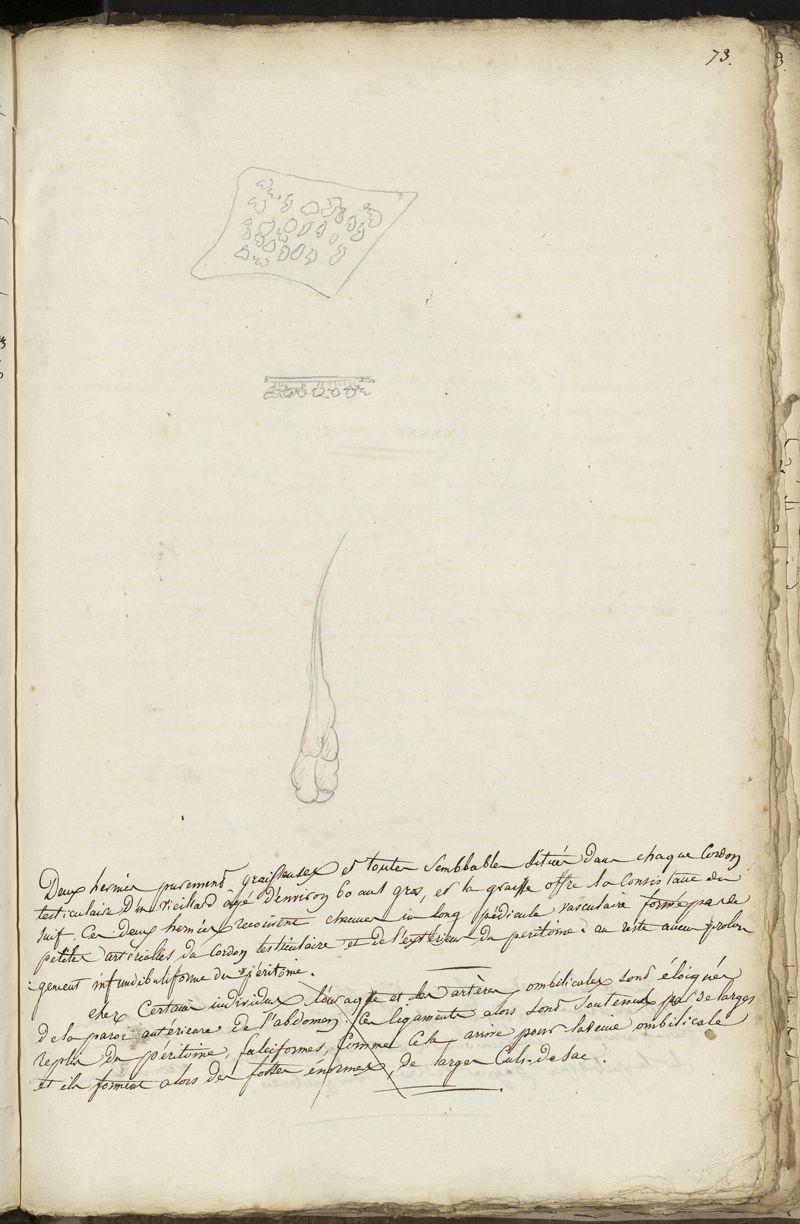 73.
Deux hernies purement graisseuses et toutes semblables situées dans chaque Cordon
testiculaire d'un vieillard agé d'environ 60 ans gras, et la graisse offre la Consistance du
suif. Ces deux hernies recoivent chacune un long pédicule vasculaire formé par de
petites artérioles du Cordon testiculaire et de l'extérieur du peritoine. au reste aucun prolon
-gement infundibuliforme du péritoine.
chez Certains individus l'ouraque et les artères ombilicales sont éloignés
de la paroi antérieure de l'abdomen. Ces ligaments alors sont soutenus par de larges
replis du péritoine, falciformes, comme cela arrive pour la veine ombilicale
et ils forment alors des fosses enormes, de larges Culs-de-sac.